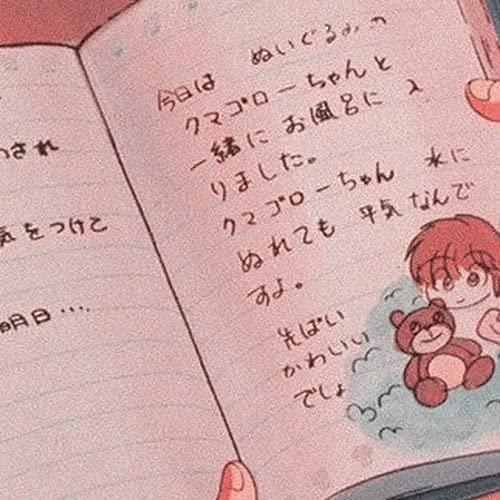 され
気をつけて
明日…
今日は ぬいぐるみの
クマゴローちゃんと
一緒にお風呂に入
りました。
クマゴローちゃん 水に
ぬれても 平気なんで
すよ。
先ぱい
かわいい
でしょ